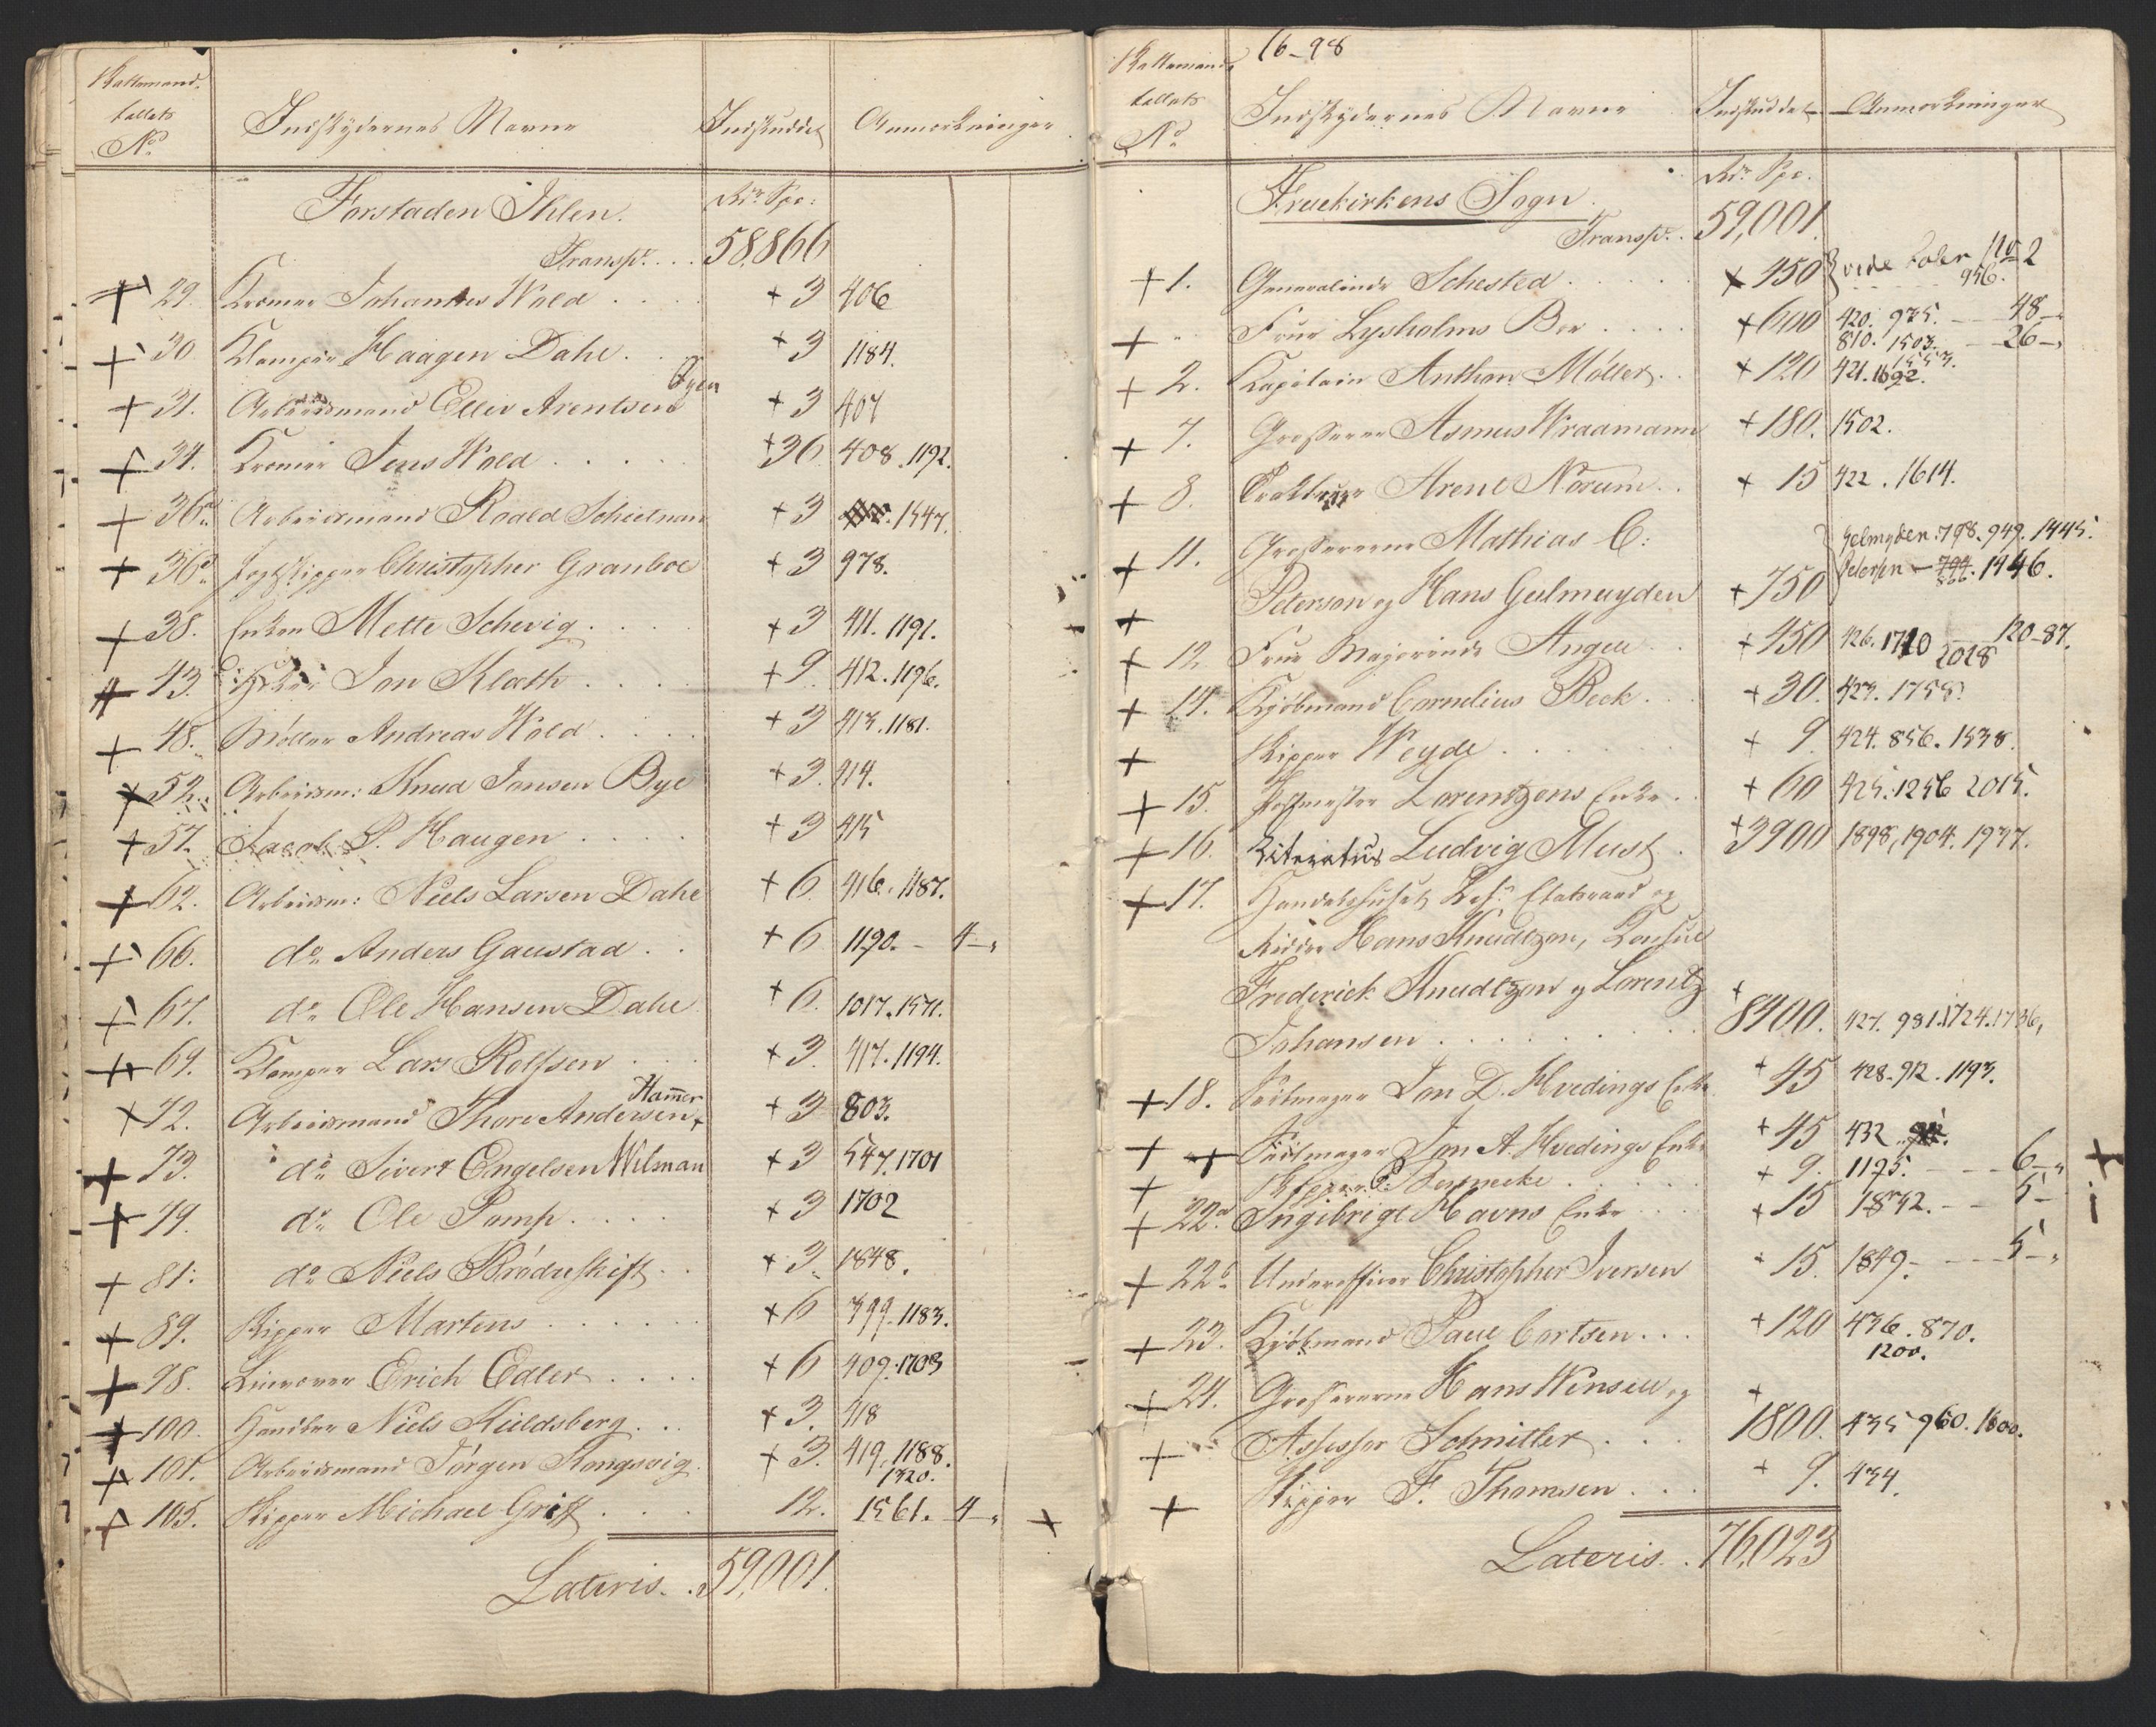 Skattemand-
tallets
No
Indskydernes Navne
Indskuddet
Anmærkninger
Forstaden Ihlen.
Rdr Spc:
Transpt. . . 58,866
+ 29. Kræmer Johannes Wold . . . . + 3 406
+ 30 Klamper Haagen Dahl . . + 3 1184.
+ 31. Arbeidsmand Ellev Arentsen Øyen + 3 407
+ 34. Kræmer Jens Wold . . . . . +36 408.1192.
+ 36 Arbeidsmand Roald Schielnan + 3 1547.
+ 36 Jegtskipper Christopher Granboe + 3 978.
+ 38. Enken Mette Schevig . . . . + 3 411. 1191.
+ 43. Jon Klæth . . . . + 9. 412.1196.
+ 48. Møller Andreas Wold . . . . + 3 413.1181.
+ 52. Arbeidsm: Knud Jonsen Bye + 3. 414.
+ 57. Jacob P. Haugen . . . . + 3 415
+ 62. Arbeidsm: Niels Larsen Dahl + 6. 416.1187.
+ 66. do Anders Gaustad . . + 6 1190. - 4-„
+ 67. do Ole Hansen Dahl + 6. 1017.1571.
+ 69. Klamper Lars Rolfsen . . . + 3. 417.1194.
+ 72. Arbeidsmand Thore Andersen Hamer + 3 803.
+ 73. do Sivert Engelsen Wilman + 3 547.1701
+ 79. do Ole Pomp . . . . + 3 1702
+ 81. do Niels Brødreskift . . + 3. 1848.
+ 89. Skipper Martens . . . . . . + 6 399.1183.
+ 98. Erich Edler . . . . + 6 409.1703
+ 100. Handler Niels Kieldsberg . . + 3. 418
+ 101. Arbeidsmand Jørgen Kongsvig. + 3. 419.1188.
1320.
+ 105. Skipper Michael Griff . . . . 12. 1561. 4-„ +
Lateris . . 59,001.
16-98
Skattemand-
tallets
No
Indskydernes Navne
Indskuddet
Anmærkninger
Fruekirkens Sogn.
Rdr Spc.
Transpt. . 59,001.
+ 1. Generalinde Schested . . . . . + 450 vide 2
956.
+ „ Frue Lysholms Boe . . . . +600 420. 975. - 48-„
810. 1503. - 26-„
+ 2. Kapitain Anthon Møller . . + 120 421.1692.
1553.
+ 7. Grosserer Asmus Wraamann +180. 1502.
+ 8. Arent Norum . . + 15 422.1614.
+ 11. Grossererne Mathias C:
Gelmyden.798.949.1445.
+ Peterson og Hans Gulmuyden +750 Petersen - 1446.
+ 12 Frue Majorinde Angell . . +450 426.1710 120-87.
2028
+ 14. Kjøbmand Cornelius Beck . . + 30. 423.1758.
+ Skipper Weyde . . . . . . + 9. 424.856.1538.
+ 15. Postmester Lorentzens Enke . . + 60 425.1256 2015.
+ 16. Literatus Ludvig Must . +3900 1898,1904.1937.
+ 17. Handelshuset Etatsraad og
Ridder Hans Knudtzon, Konsul
Frederick Knudtzon og Lorentz
Johansen . . . . . . . +8400. 427. 981.1724.1736,
+ 18. Jon D. Hvedings Enke +45 428.912.1193.
+ Jon A. Hvedings Enke +45 432.
+ Skipper C. Bernecke . . . . . + 9. 1195. - - - 6-„ +
+ 22a Ingebrigt Havns Enke . . . + 15 1842. - - 5-
+ 22b Underofficer Christopher Iversen + 15. 1849. - - - 5-„
+ 23. Kjøbmand Paul Cortsen . . . +120 436.870.
1200.
+ 24. Grossererne Hans Wensell og
+ Assessor Schnitler . . . + 1800. 435 960. 1600.
+ Skipper F. Thomsen . . . + 9. 434.
Lateris . . 76,023